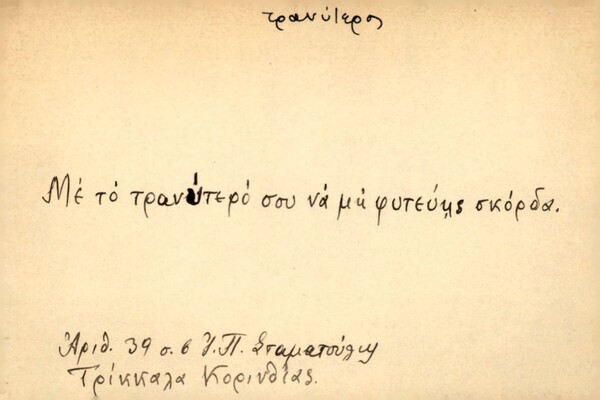 τρανύτερος
Μέ τό τρανύτερό σου νά μή φυτεύῃς σκόρδα.
Ἀριθ. 39 σ. 6 Ι. Π. Σταματούλη
Τρίκκαλα Κορινθίας.